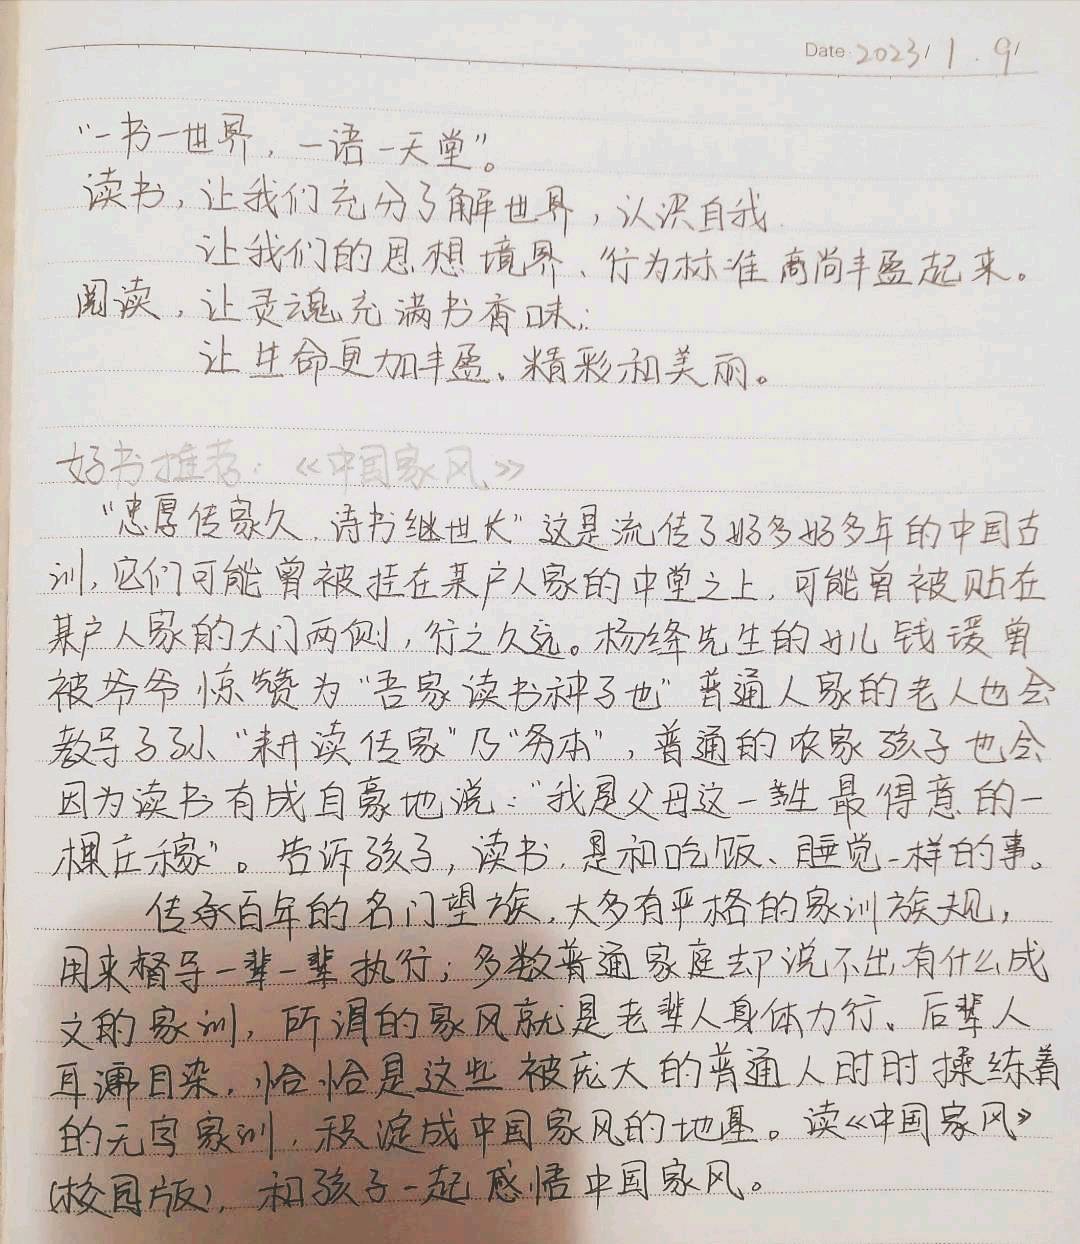 Date 2023/1.9/
“一书一世界，一语一天堂”。
读书，让我们充分了解世界，认识自我
让我们的思想境界、行为标准高尚丰盈起来。
阅读，让灵魂充满书香味；
让生命更加丰盈、精彩和美丽。
好书推荐：《中国家风》
“忠厚传家久，诗书继世长”这是流传了好多好多年的中国古
训，它们可能曾被挂在某户人家的中堂之上，可能曾被贴在
某户人家的大门两侧，行之久远。杨绛先生的女儿钱瑗曾
被爷爷惊赞为“吾家读书种子也”普通人家的老人也会
教导子孙、“耕读传家”乃“务本”，普通的农家孩子也会
因为读书有成自豪地说：“我是父母这一生最得意的一
棵庄稼”。告诉孩子，读书，是和吃饭、睡觉一样的事。
传承百年的名门望族，大多有严格的家训族规，
用来督导一辈一辈执行；多数普通家庭却说不出有什么成
文的家训，所谓的家风就是老辈人身体力行、后辈人
耳濡目染，恰恰是这些被庞大的普通人时时操练着
的无字家训，积淀成中国家风的地基。读《中国家风》
（校园版），和孩子一起感悟中国家风。